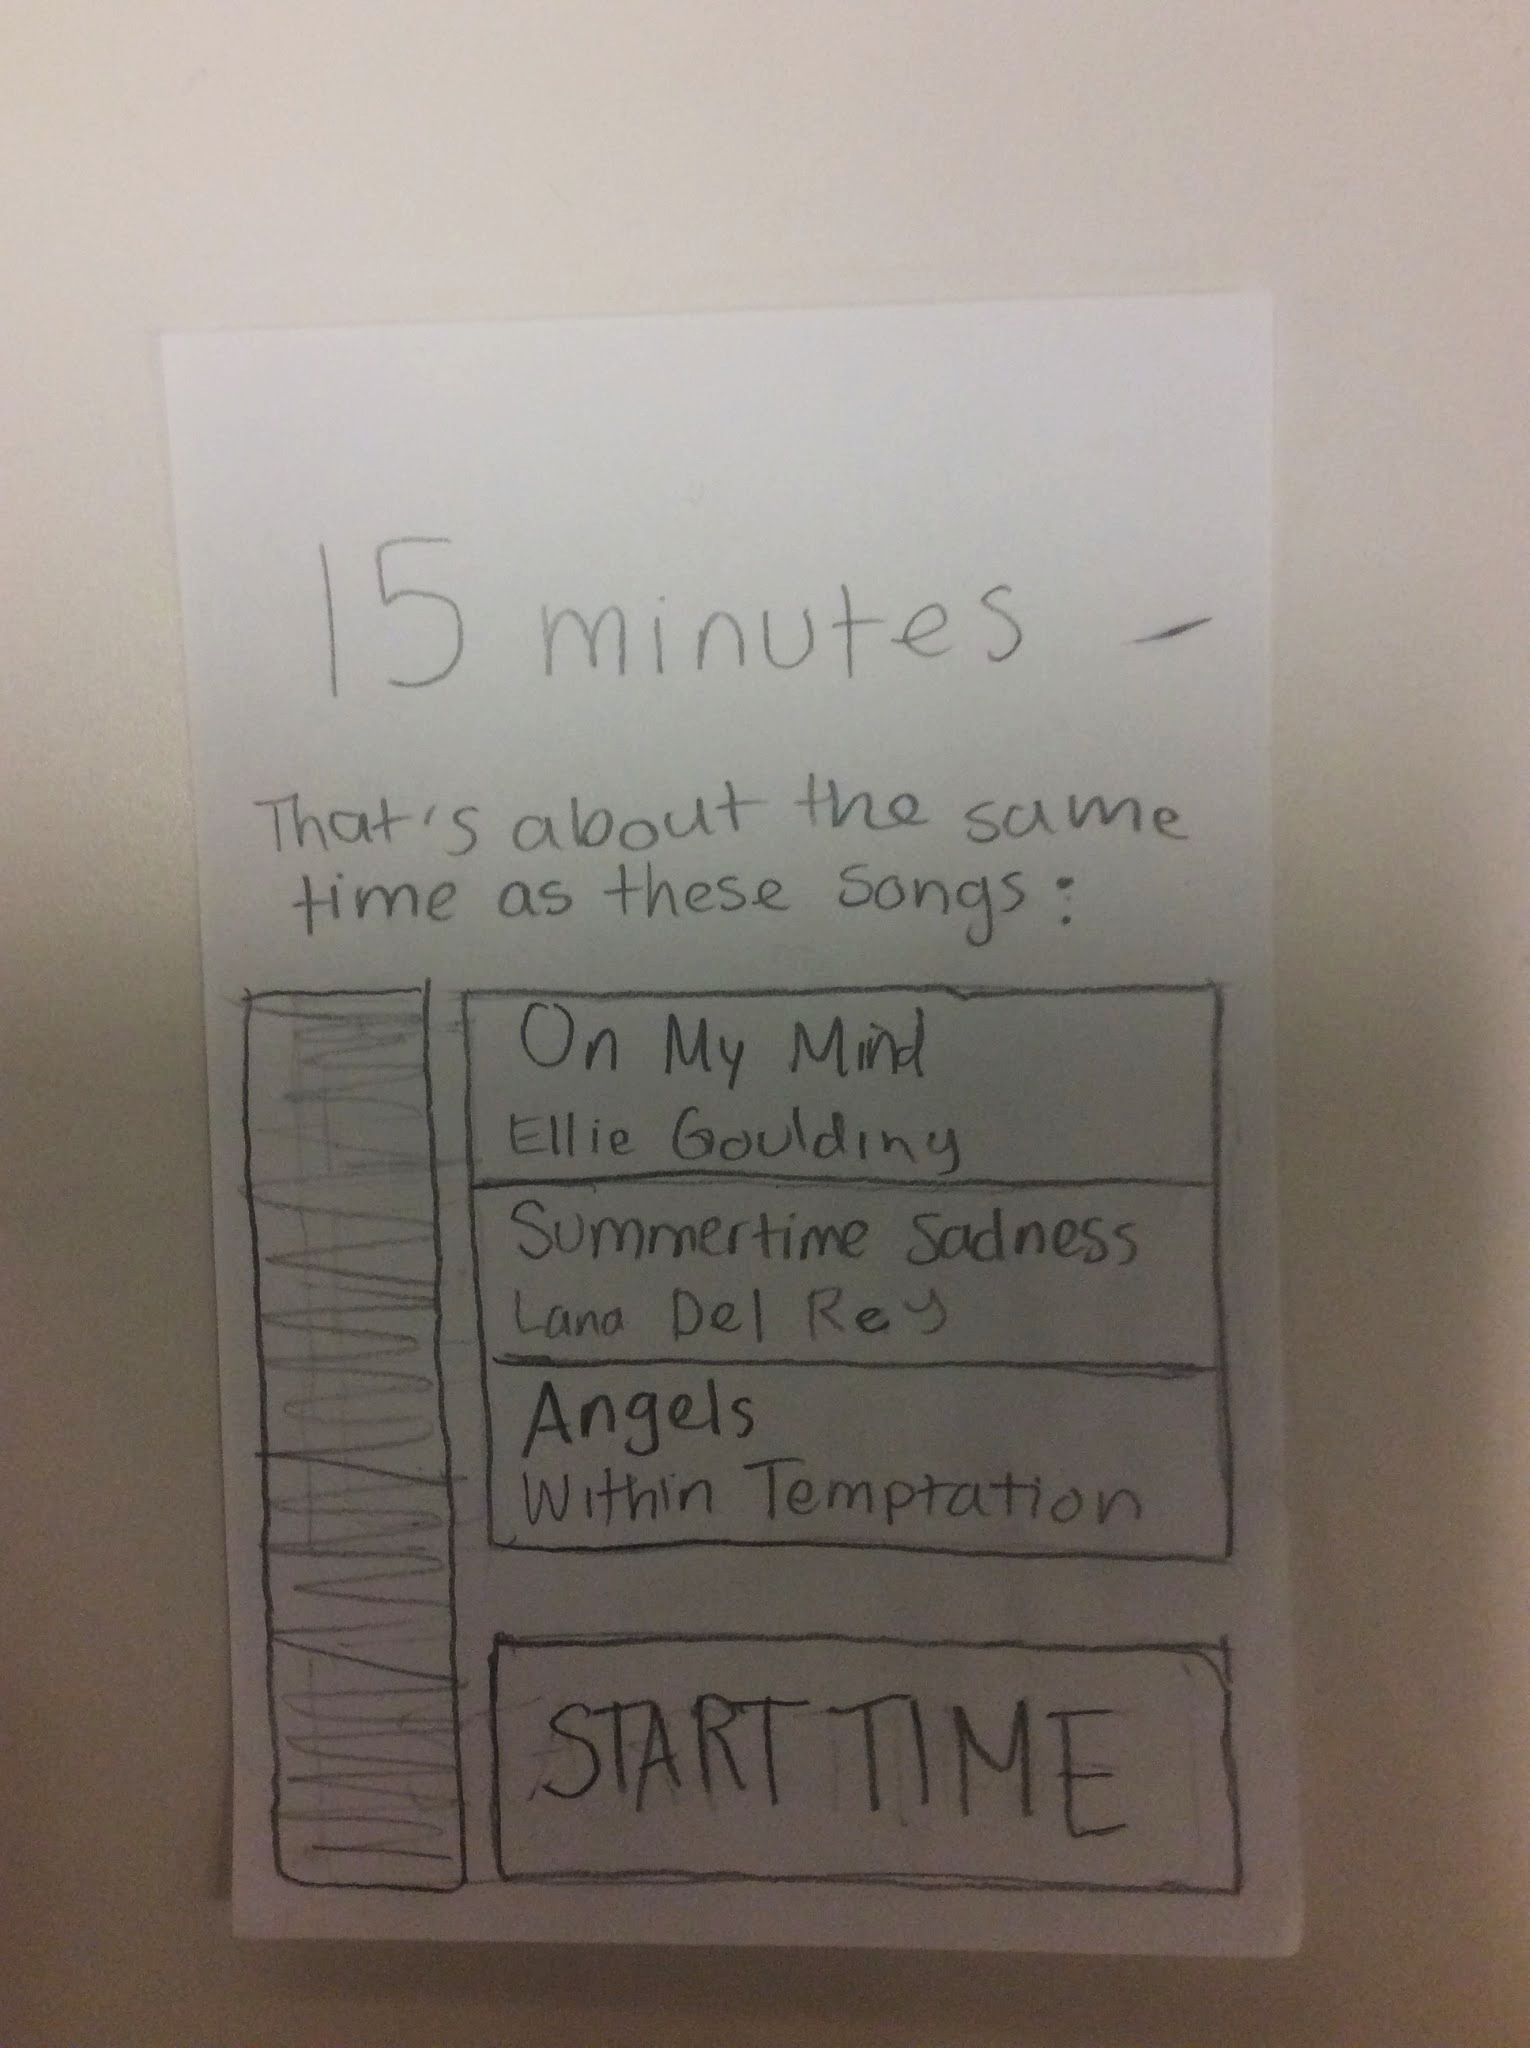 15 minutes -
That's about the same
time as these songs:
On My Mind
Ellie Goulding
Summertime Sadness
Lana Del Rey
Angels
Within Temptation
START TIME